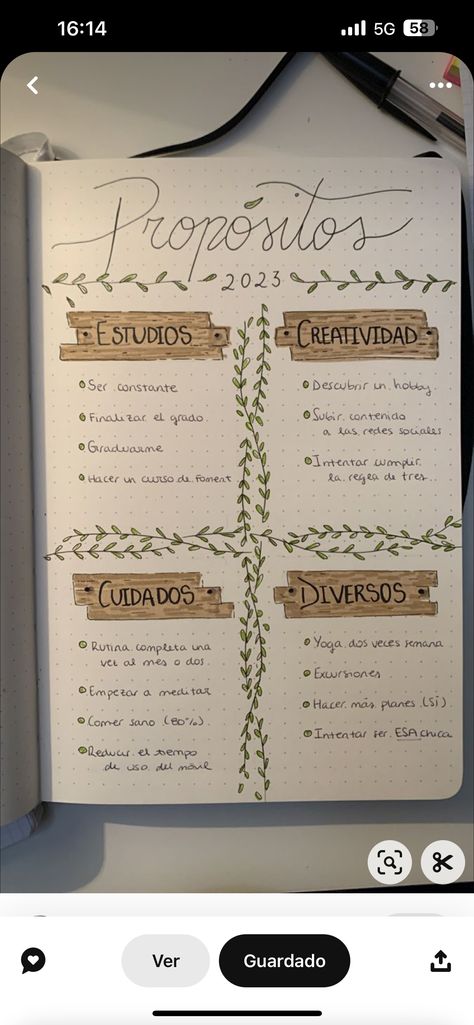 16:14
5G
58
Propósitos
2023
ESTUDIOS
Ser constante
Finalizar el grado.
Graduarme
Hacer un curso de Foment
CREATIVIDAD
Descubrir un hobby.
Subir contenido
a las redes sociales
Intentar cumplir
la regla de tres.
CUIDADOS
Rutina completa una
vez al mes o dos.
Empezar a meditar
Comer sano (80%).
Reducir el tiempo
de uso del móvil
DIVERSOS
Yoga dos veces semana
Excursiones
Hacer más planes (SÍ)
Intentar ser ESA chica
Ver
Guardado